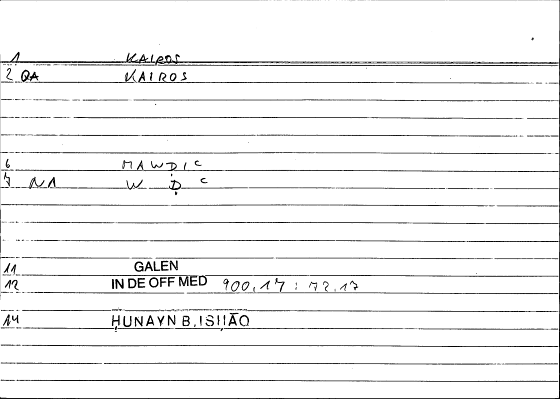 1 KAIROS
2 QA KAIROS
6 MAWḌIC
7 NA W Ḍ C
11 GALEN
12 IN DE OFF MED 900,17 : 72.17
14 ḤUNAYN B. ISḤĀQ